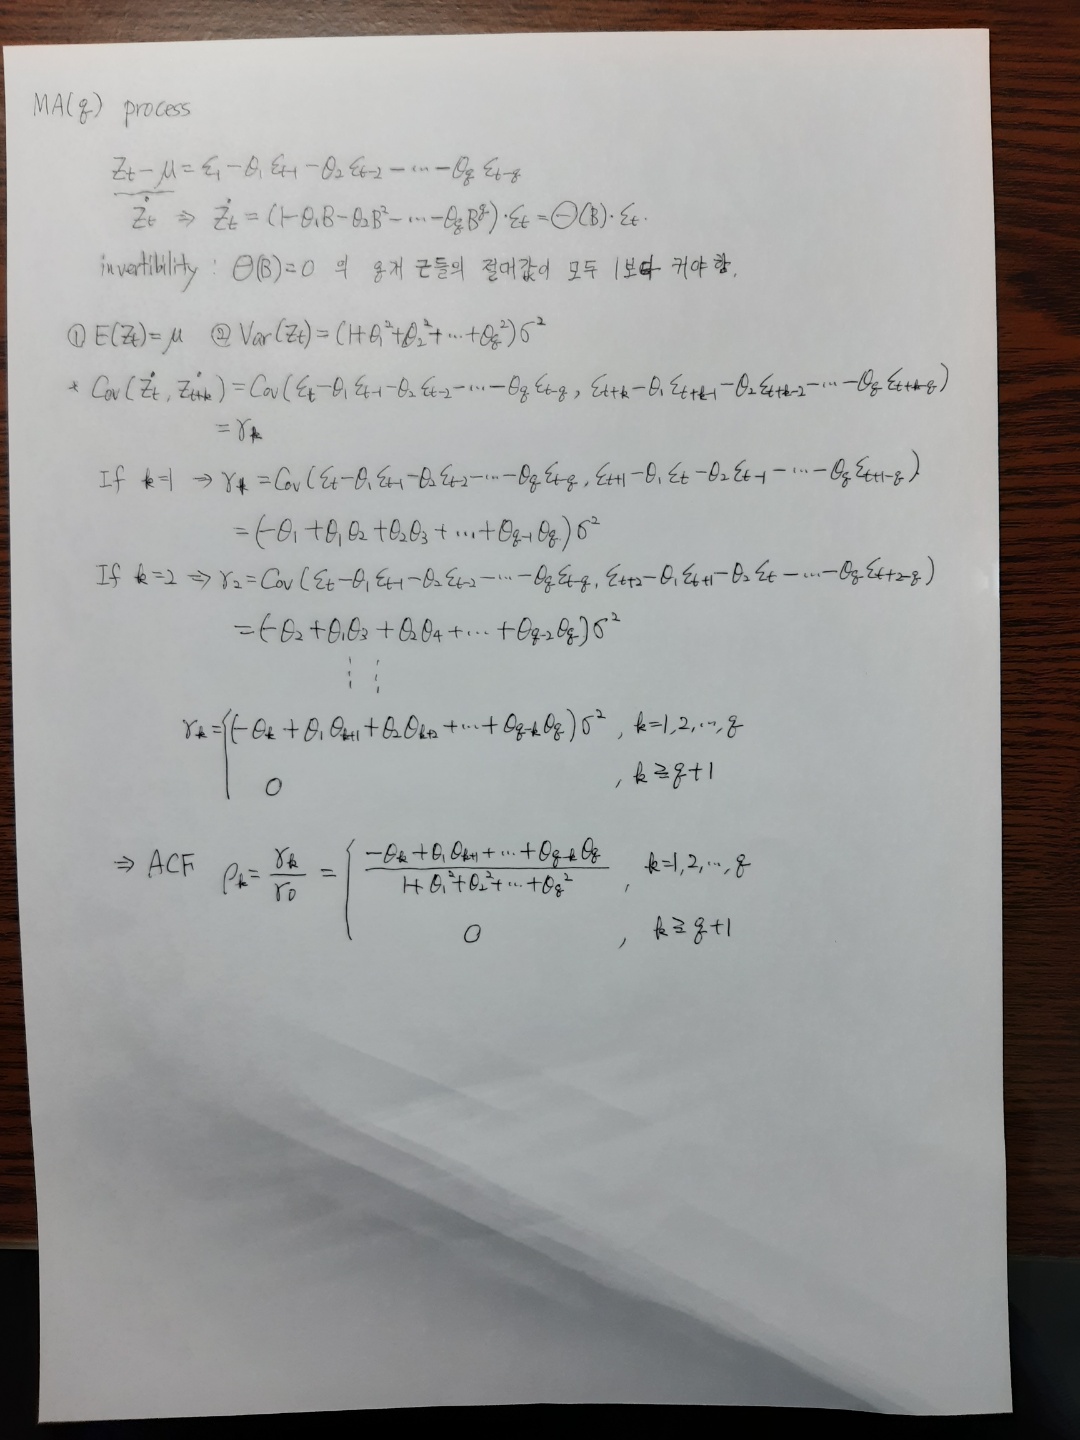 MA(q) process
Zt − μ = ε1 − θ1 εt-1 − θ2 εt-2 − ⋯ − θq εt-q
Żt ⇒ Żt = (1 − θ1B − θ2B² − ⋯ − θqB^q)·εt = Θ(B)·εt.
invertibility : Θ(B)=0 의 q개 근들의 절대값이 모두 1보다 커야 함.
① E(Zt)=μ ② Var(Zt)=(1+θ1²+θ2²+⋯+θq²)σ²
* Cov(Żt, Żt+k) = Cov(εt−θ1 εt-1−θ2 εt-2−⋯−θq εt-q, εt+k−θ1 εt+k-1−θ2 εt+k-2−⋯−θq εt+k-q)
= γk
If k=1 ⇒ γ1 = Cov(εt−θ1 εt-1−θ2 εt-2−⋯−θq εt-q, εt+1−θ1 εt−θ2 εt-1−⋯−θq εt+1-q)
= (−θ1 + θ1θ2 + θ2θ3 + ⋯ + θq-1 θq)σ²
If k=2 ⇒ γ2 = Cov(εt−θ1 εt-1−θ2 εt-2−⋯−θq εt-q, εt+2−θ1 εt+1−θ2 εt−⋯−θq εt+2-q)
= (−θ2 + θ1θ3 + θ2θ4 + ⋯ + θq-2θq)σ²
⋮ ⋮
γk = { (−θk + θ1 θk+1 + θ2 θk+2 + ⋯ + θq-k θq)σ² , k=1,2,⋯,q
0 , k≧q+1
⇒ ACF ρk = γk/γ0 = { (−θk + θ1 θk+1 + ⋯ + θq-k θq)/(1+θ1²+θ2²+⋯+θq²) , k=1,2,⋯,q
0 , k≧q+1